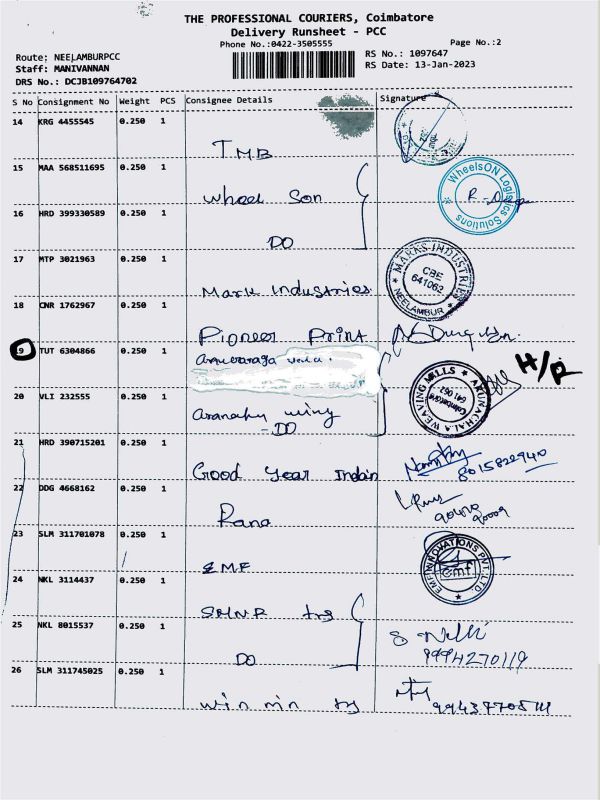 THE PROFESSIONAL COURIERS, Coimbatore
Delivery Runsheet - PCC
Phone No.:0422-3505555
Page No.:2
Route: NEELAMBURPCC
RS No.: 1097647
Staff: MANIVANNAN
RS Date: 13-Jan-2023
DRS No.: DCJB109764702
S No Consignment No Weight PCS Consignee Details Signature
14 KRG 4455545 0.250 1
TMB
15 MAA 568511695 0.250 1
Wheel Son
WheelsON Logistics Solutions
16 HRD 399330589 0.250 1
DO
17 MTP 3021963 0.250 1
Mark Industries
MARKS INDUSTRIES
CBE
641062
NEELAMBUR
18 CNR 1762967 0.250 1
Pioneer Print
19 TUT 6304866 0.250 1
H/R
20 VLI 232555 0.250 1
ARUNACHALA WEAVING MILLS
Coimbatore
641 062
DO
21 HRD 390715201 0.250 1
Good Year Indain
8015822940
22 DDG 4668162 0.250 1
Rana
23 SLM 311701078 0.250 1
EMF
EMF INNOVATIONS PVT.LTD.
emf
24 NKL 3114437 0.250 1
25 NKL 8015537 0.250 1
DO
9994270119
26 SLM 311745025 0.250 1
win win